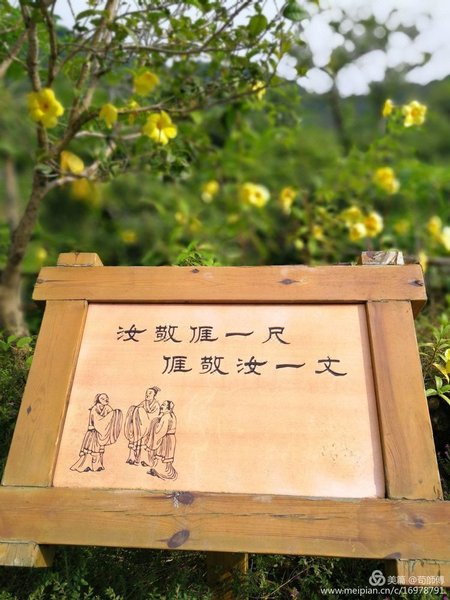 汝敬𠊎一尺
𠊎敬汝一文
美篇 @荀師傅
www.meipian.cn/c/16978791